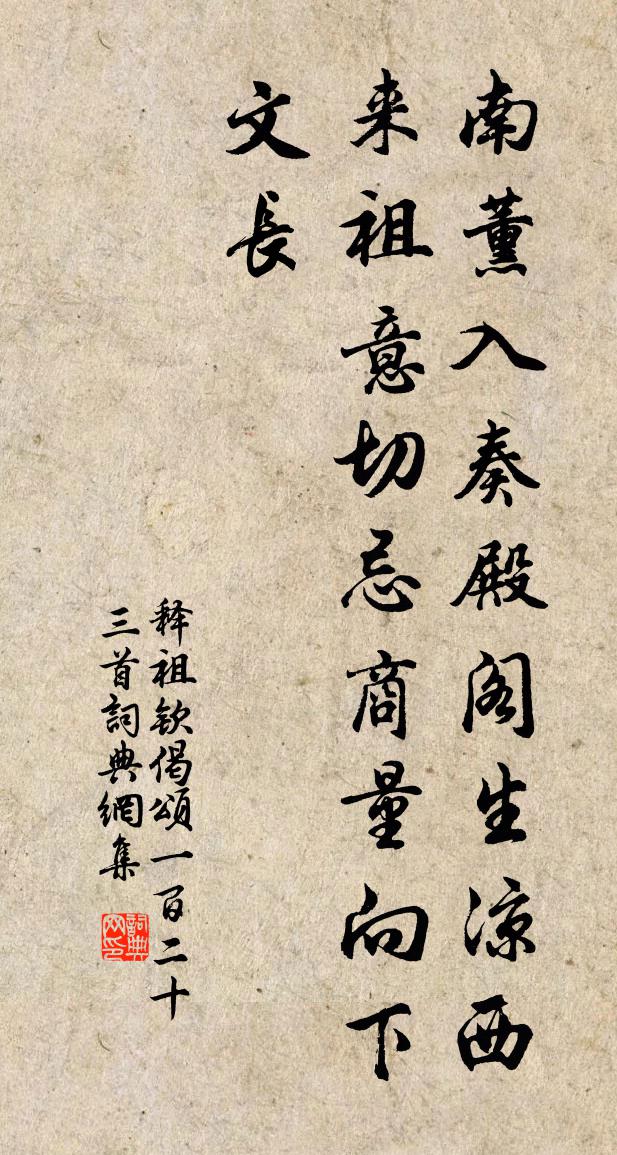 南薰入奏殿阁生凉西
来祖意切忌商量向下
文長
释祖钦偈頌一百二十
三首詞典網集
詞典
网印